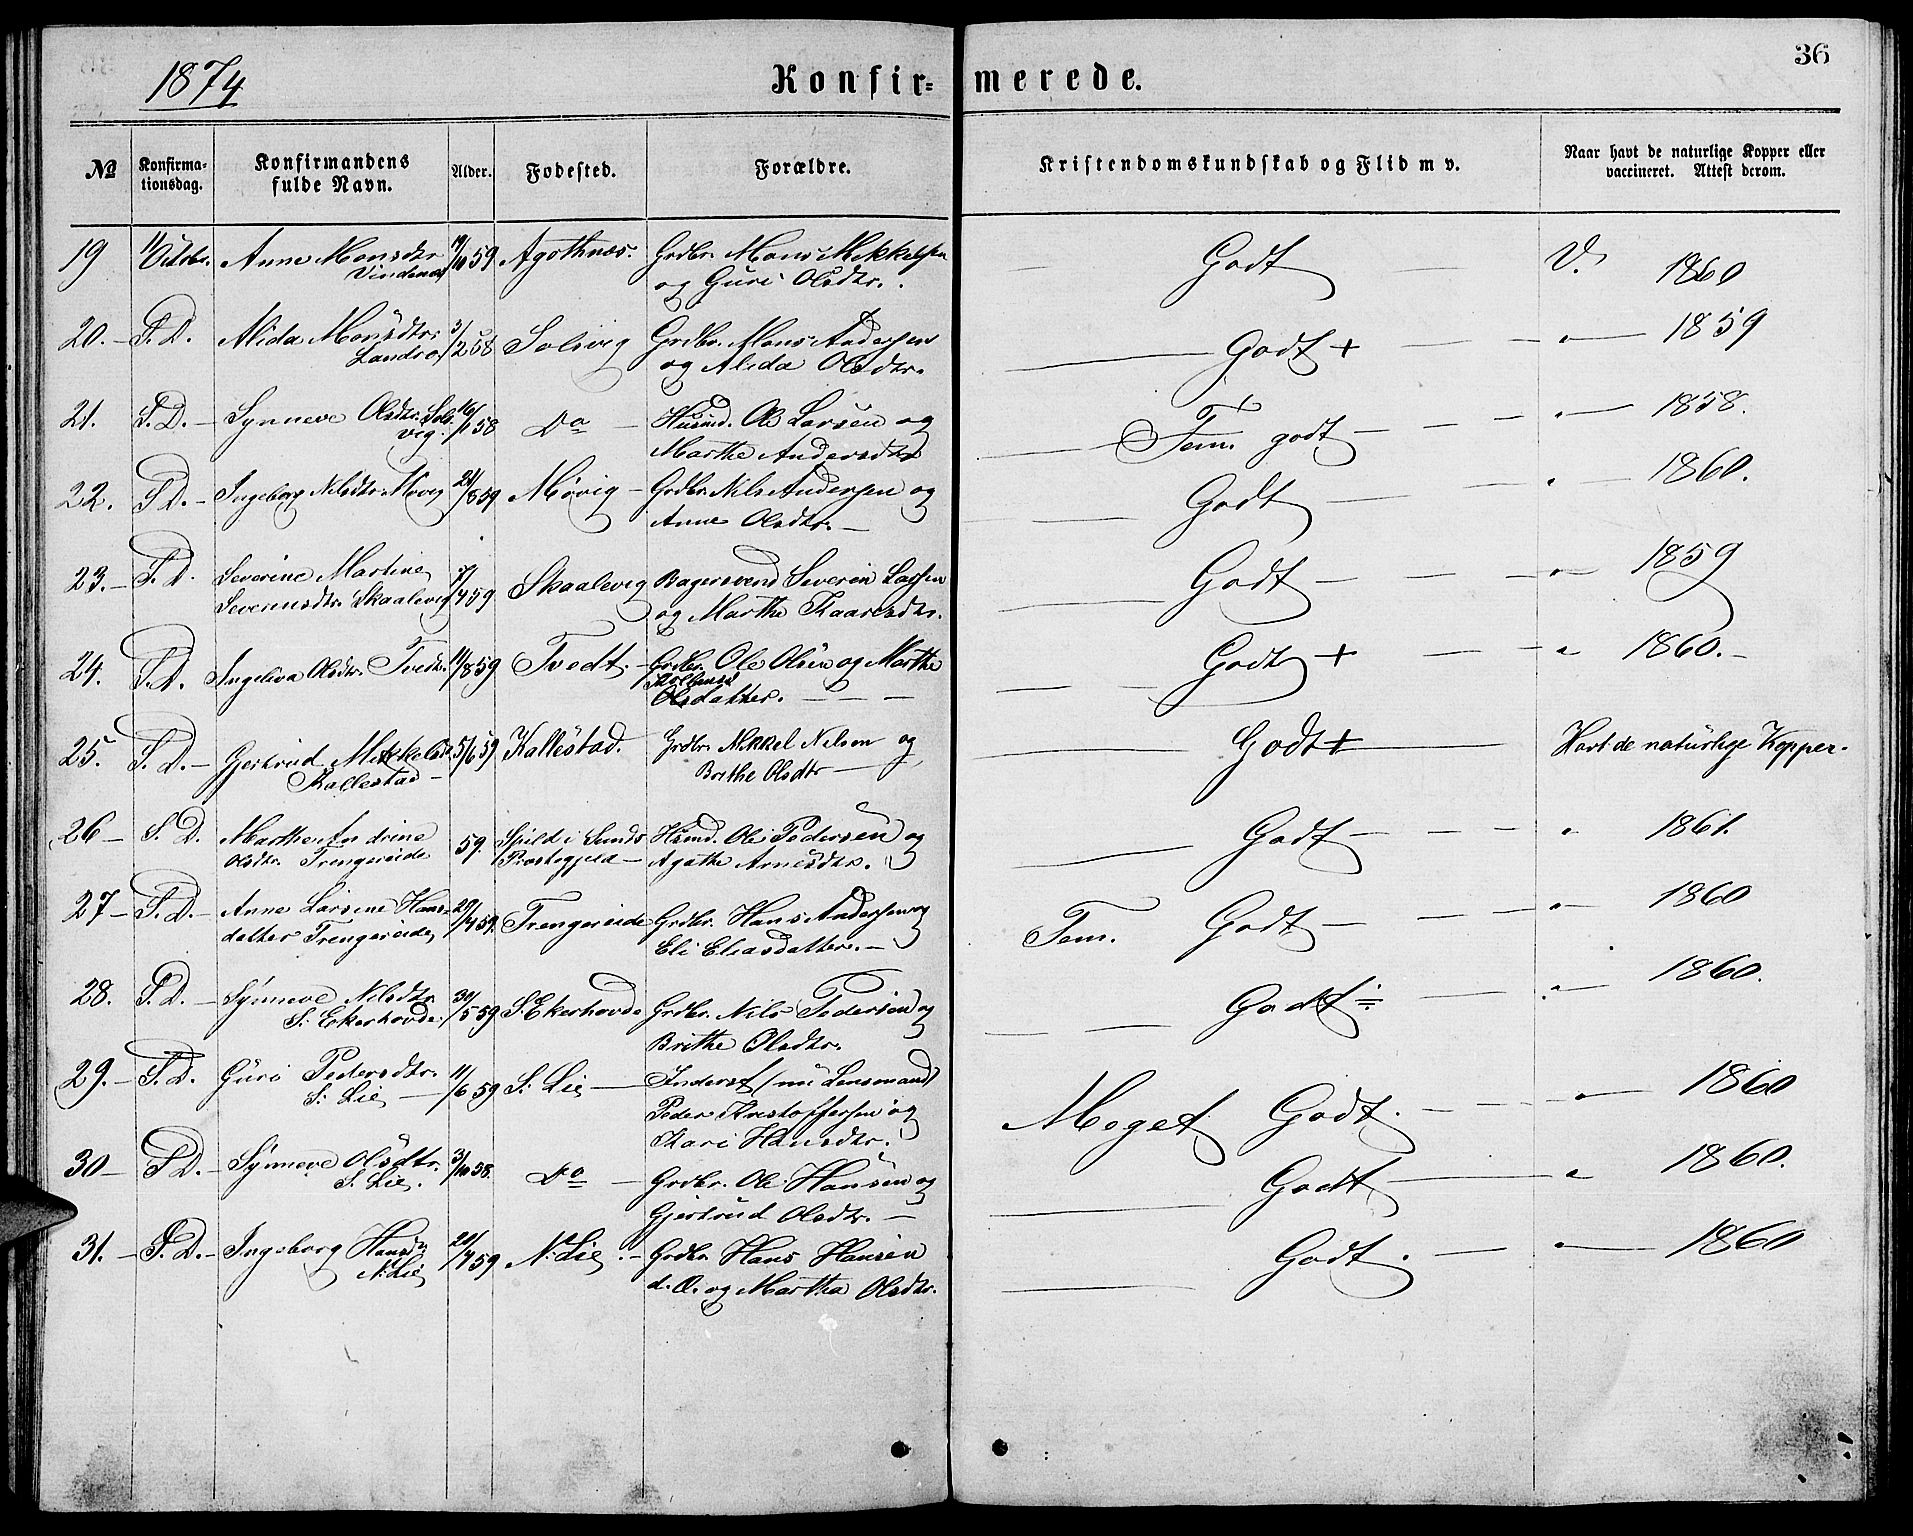 36
1874 Konfir= merede.
№ Konfirma- Konfirmandens Alder. Fødested. Forældre. Kristendomskundskab og Flid m v. Naar havt de naturlige Kopper eller
tionsdag. fulde Navn. vaccineret. Attest derom.
19 11/Octbr. Anne Monsdtr. 19/10 59 Agothnæs. Grdbr. Mons Mikkelsen Godt V. 1860
Vindenæs og Guri Olsdtr.
20. S. D. Alida Monsdtr. 3/2 58 Solsvig Grdbr. Mons Andersen Godt + " 1859
Landrø og Alida Olsdtr.
21. S. D. Synneve Olsdtr. Sols- 16/11 58 Do Husmd. Ole Larsen og Tem. godt " 1858.
vig. Marthe Andersdtr
22. S. D. Ingeborg Nilsdtr. Møvig 21/8 59 Møvig Grdbr. Nils Andersen og Godt " 1860.
Anne Olsdtr.
23. S. D. Severine Martine 7/4 59 Skaalevig Bagersvend Severin Larsen Godt " 1859
Severinsdtr. Skaalevig og Marthe Kaaresdtr.
24. S. D. Ingeliva Olsdtr. Tvedt. 11/8 59 Tvedt. Grdbr. Ole Olsen og Marthe Godt + " 1860.
Olsdatter.
25. S. D. Gjertrud Mikkelsd. 5/6 59 Kallestad. Grdbr. Mikkel Nilsen og Godt + Havt de naturlige Kopper.
Kallestad Brithe Olsdtr
26 S. D. Marthe Andrine 59. Spild i Sunds Husmd. Ole Pedersen og Godt " 1861.
Olsdtr. Trengereide Præstegjeld Agathe Arnesdtr.
27 S. D. Anne Larsine Hans- 29/4 59. Trengereide Grdbr. Hans Andersen og Tem. Godt " 1860
datter Trengereide Eli Eliasdatter.
28. S. D. Synneve Nilsdtr. 30/5 59 S. Ekerhovde Grdbr. Nils Pedersen og Godt " 1860.
S. Ekerhovde Brithe Olsdtr.
29. S. D. Guri Pedersdtr. 11/6 59 S: Lie Inderst (nu Lensmand) Meget Godt. " 1860
S: Lie Peder Kristoffersen og
Kari Hansdtr.
30 S. D. Synneve Olsdtr. 3/10 58. Do Grdbr. Ole Hansen og Godt " 1860.
S. Lie. Gjertrud Olsdtr.
31. S. D. Ingeborg Hansd. 20/4 59 N: Lie Grdbr. Hans Hansen Godt. " 1860
N: Lie d. Æ. og Martha Olsdtr.